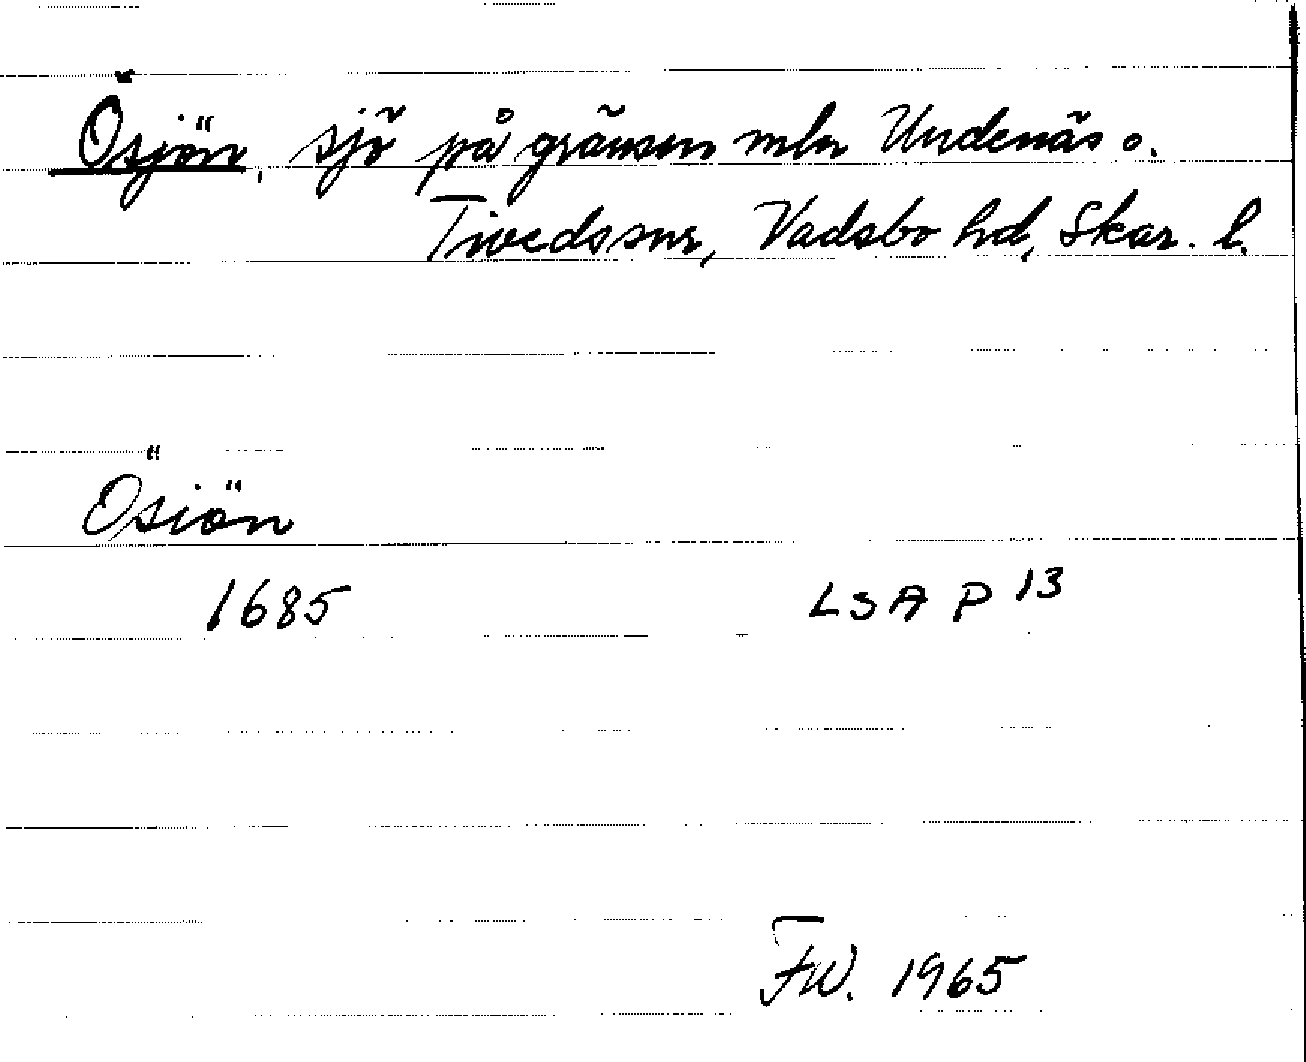 Ösjön, sjö på gränsen mln Undenäs o.
Tiveds snr, Vadsbo hd, Skar. l.
Ösiön
1685 LSA P 13
FW. 1965